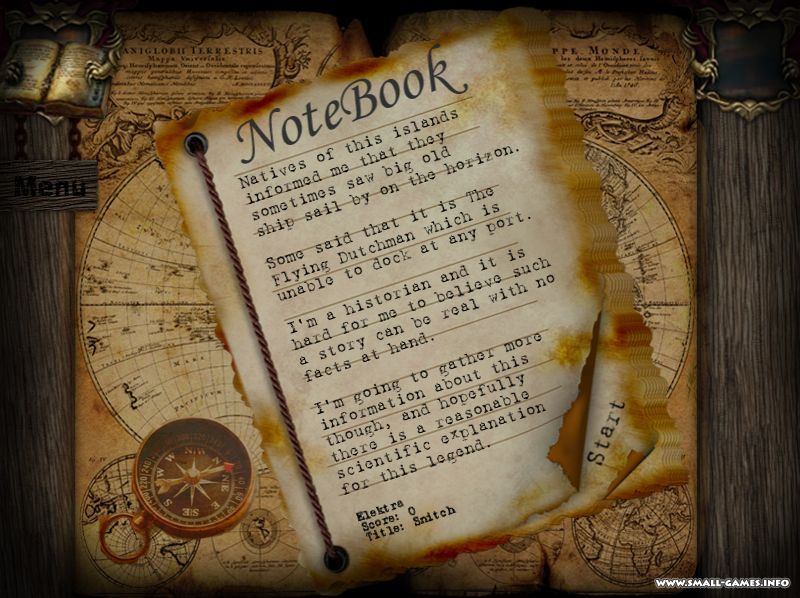 NIGLOBII TERRESTRIS
Mappa Universalis
PPE MONDE
NoteBook
Natives of this islands
informed me that they
sometimes saw big old
ship sail by on the horizon.
Some said that it is The
Flying Dutchman which is
unable to dock at any port.
I'm a historian and it is
hard for me to believe such
a story can be real with no
facts at hand.
I'm going to gather more
information about this
though, and hopefully
there is a reasonable
scientific explanation
for this legend.
Elektra
Score: 0
Title: Snitch
Start
Menu
WWW.SMALL-GAMES.INFO